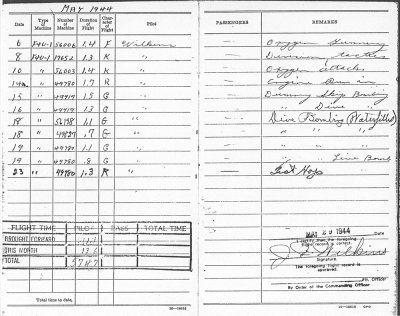 MAY 1944
Date
Type of Machine
Number of Machine
Duration of Flight
Character of Flight
Pilot
PASSENGERS
REMARKS
6 F4U-1 56006 1.4 F Wilkins — Oxygen Gunnery
8 F4U-1 17652 1.3 K " — Division tactics
10 " 56003 1.4 K " — Oxygen attack
" 49780 1.7 R " — Engine Run in
15 " 49919 1.5 G " — Dummy Skip Bombing
16 " 1.3 G " — " Dive "
18 " 1.1 G " — Dive Bombing (Waterfilled)
18 " .7 G " — " " "
19 " 49780 1.1 G " — " " "
19 " 49780 .8 G " — " Live Bomb
23 " 49780 1.3 R " — Test Hop
FLIGHT TIME PILOT PASS TOTAL TIME
BROUGHT FORWARD
THIS MONTH 13.6
TOTAL
Total time to date,
MAY 29 1944
I certify that the foregoing flight record is correct.
J. E. Wilkins
Signature.
The foregoing flight record is approved:
Flt. Officer
By Order of the Commanding Officer